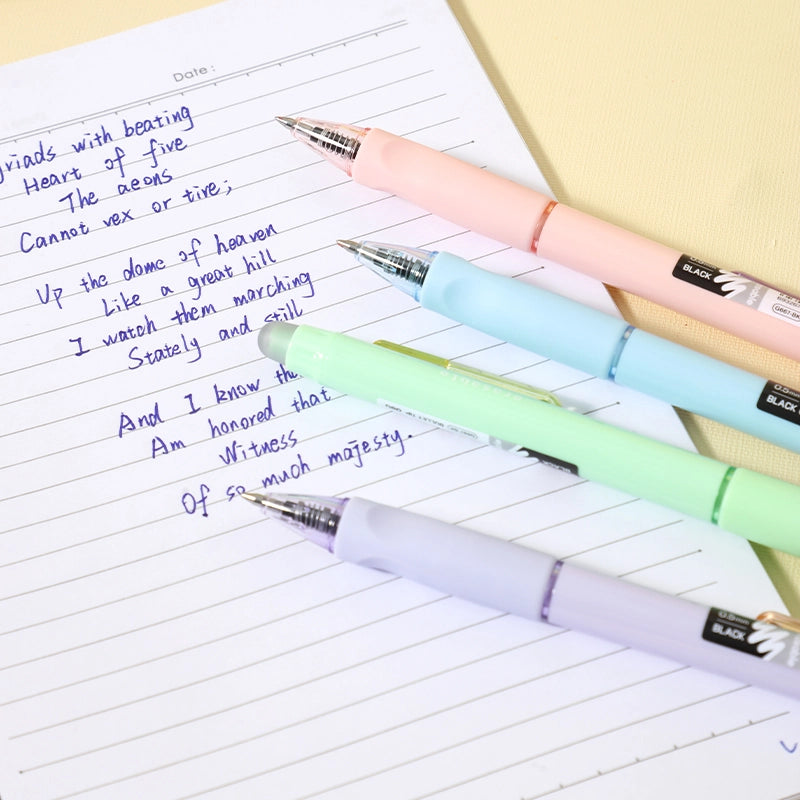 Date:
yriads with beating
Heart of five
The aeons
Cannot vex or tire;
Up the dome of heaven
Like a great hill
I watch them marching
Stately and still
And I know
Am honored that
Witness
Of so much majesty.
BLACK
0.5mm
BLACK
0.5mm
BLACK